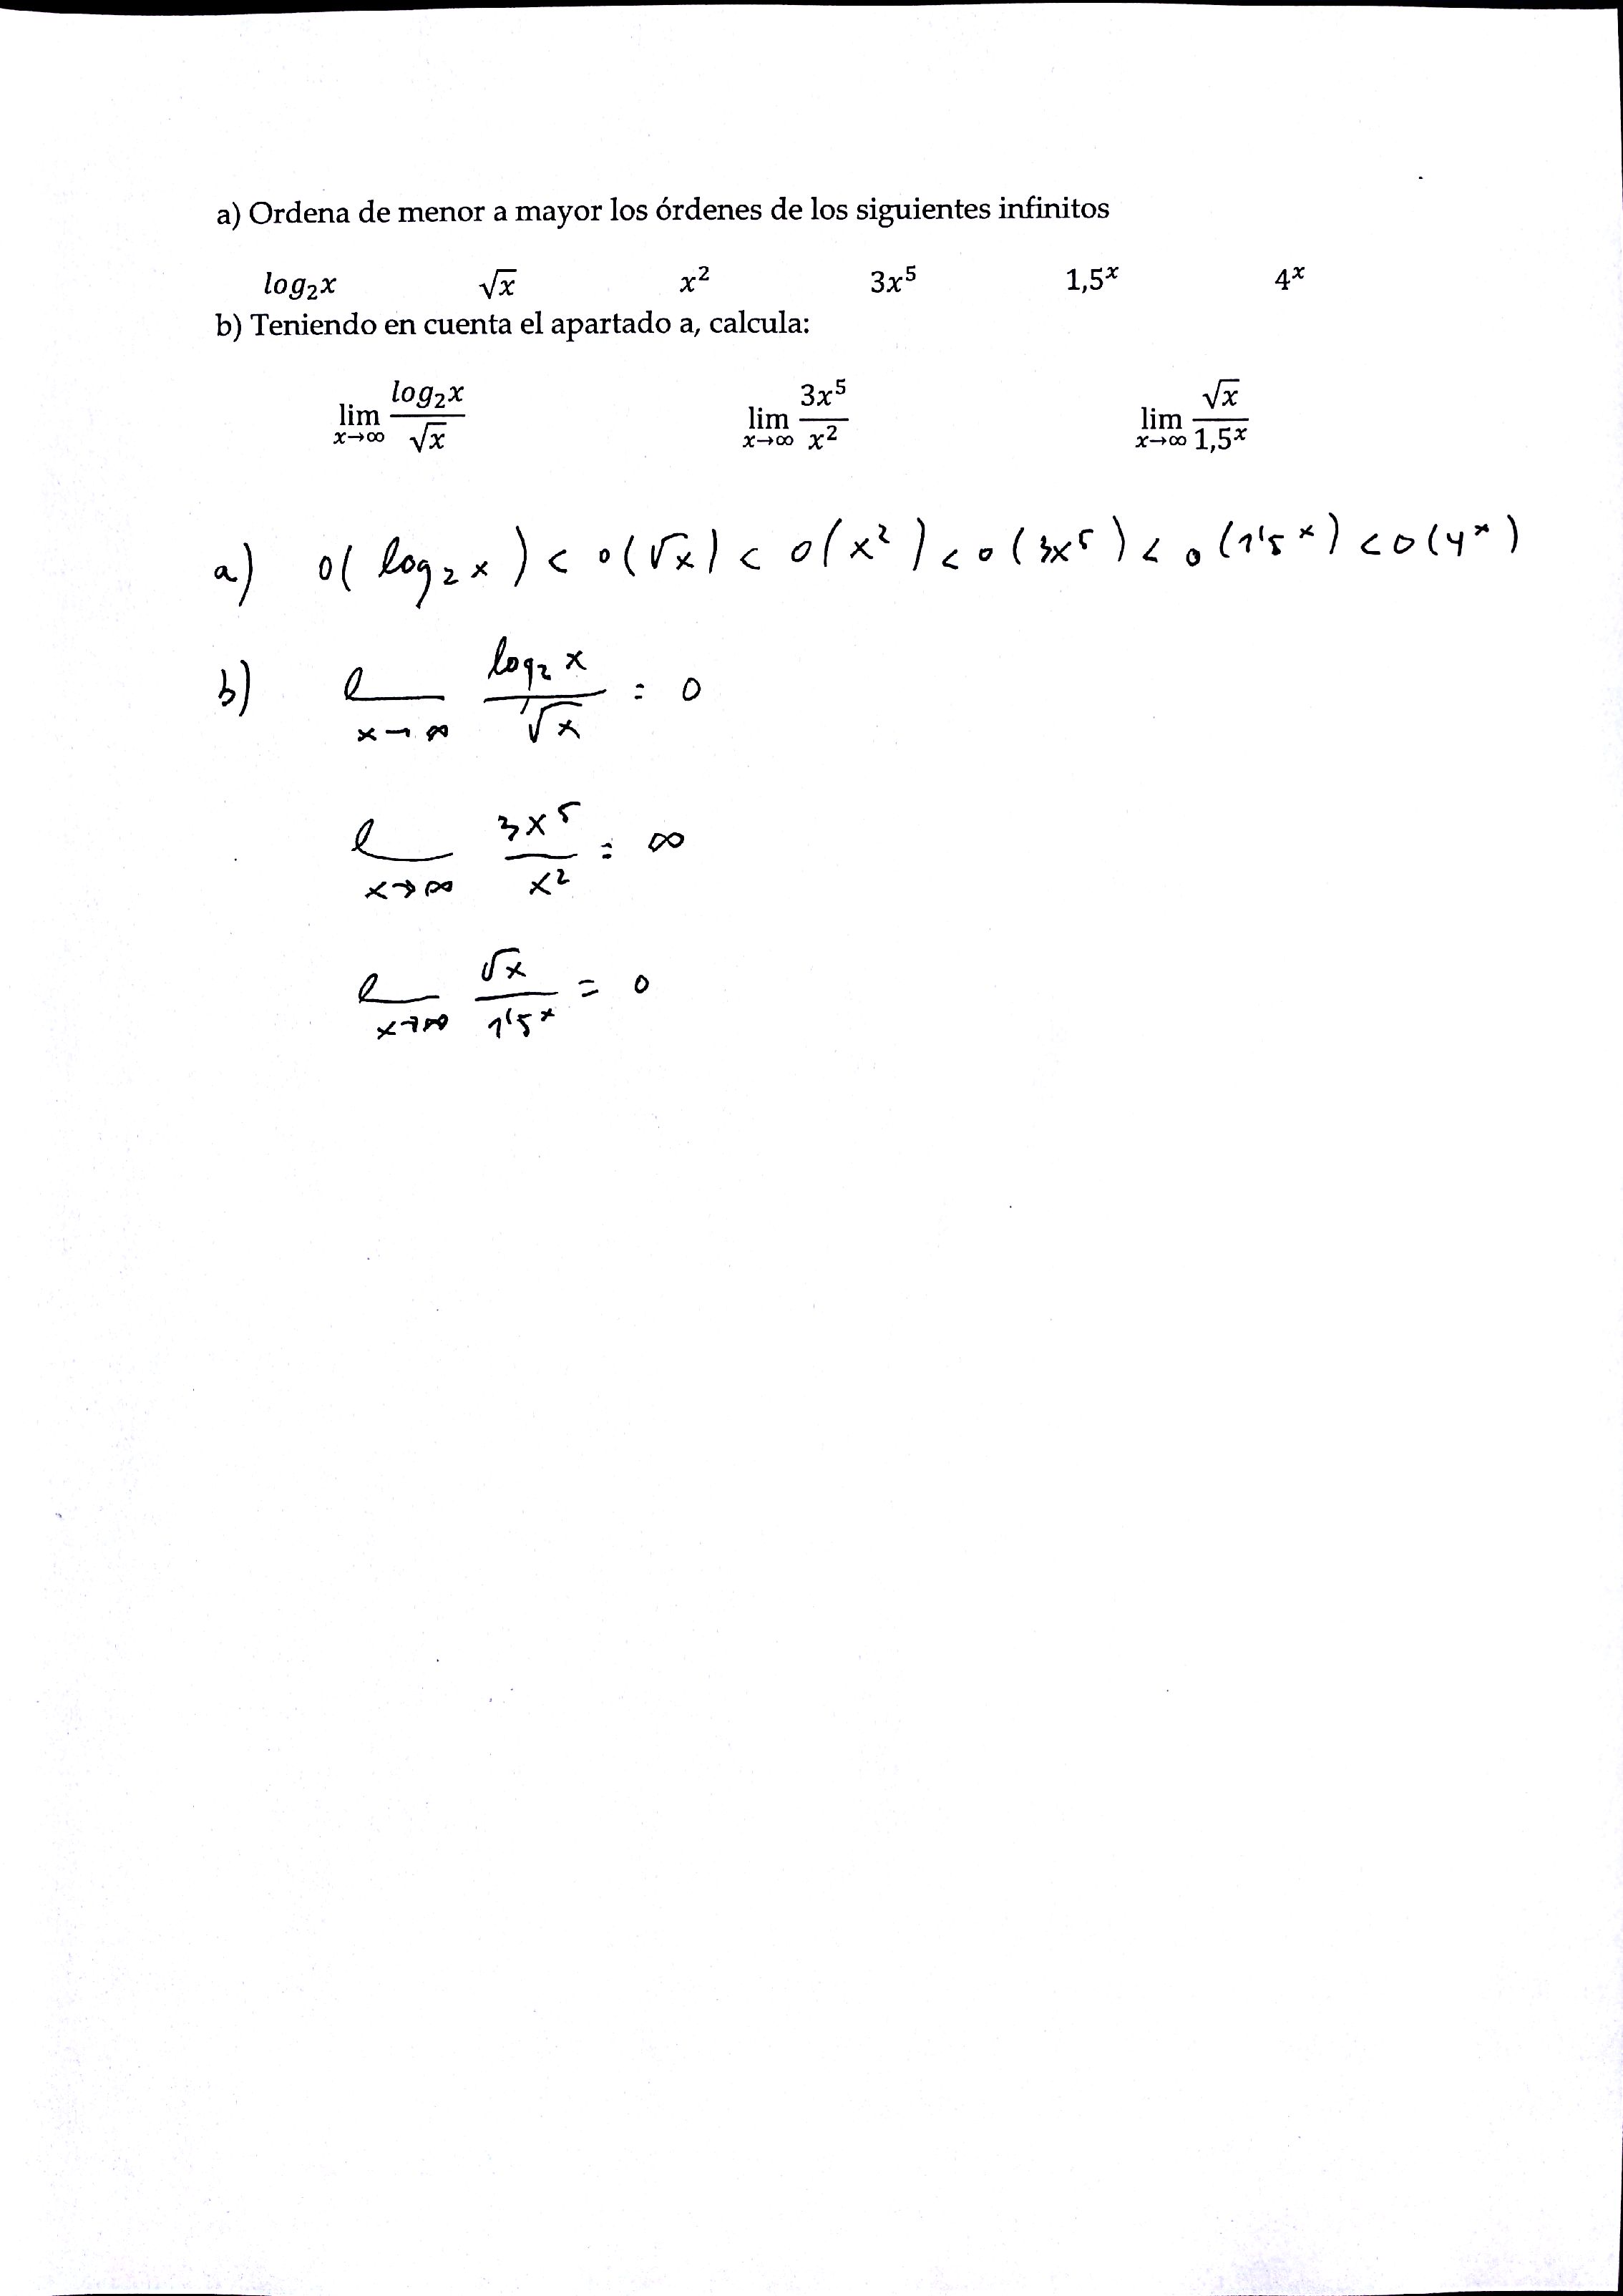 a) Ordena de menor a mayor los órdenes de los siguientes infinitos
log₂x √x x² 3x⁵ 1,5ˣ 4ˣ
b) Teniendo en cuenta el apartado a, calcula:
lim x→∞ log₂x / √x lim x→∞ 3x⁵ / x² lim x→∞ √x / 1,5ˣ
a) o( log₂ x ) < o(√x) < o(x²) < o(3x⁵) < o(1'5ˣ) < o(4ˣ)
b) l x→∞ log₂ x / √x = 0
l x→∞ 3x⁵ / x² = ∞
l x→∞ √x / 1'5ˣ = 0